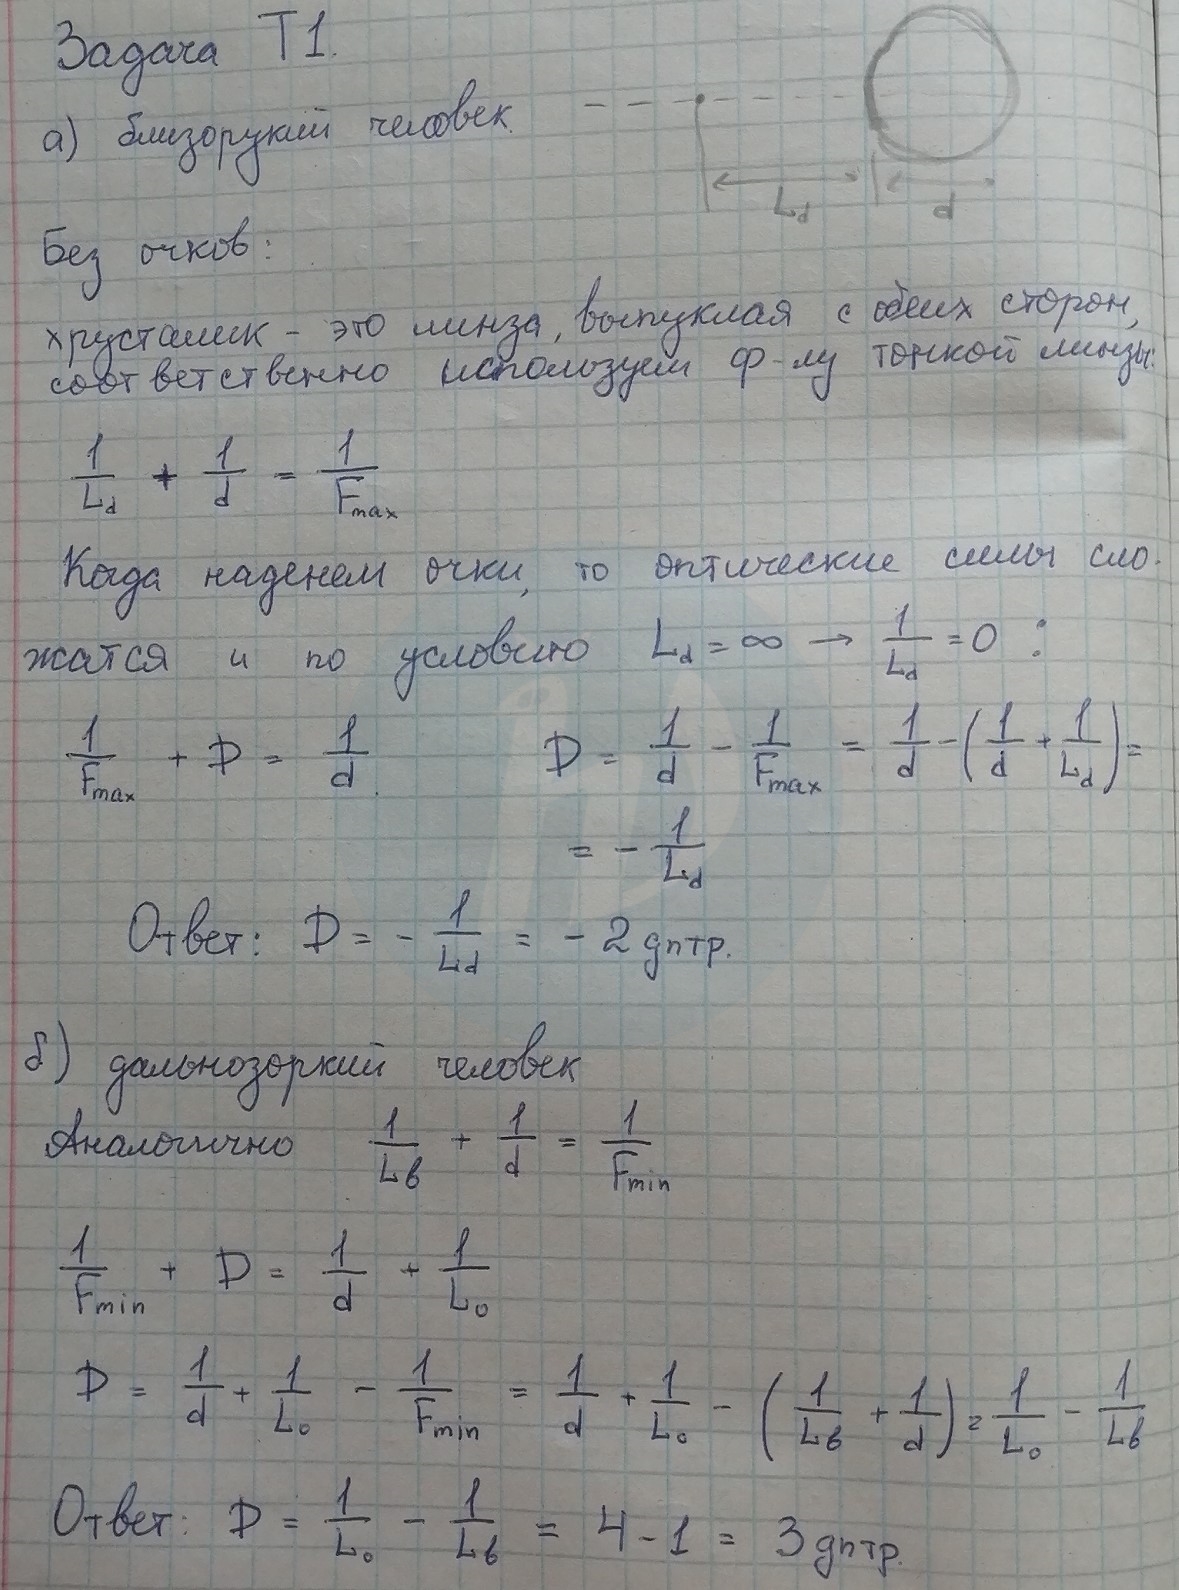 Задача Т1.
а) близорукий человек.
L_d d
Без очков:
хрусталик - это линза, выпуклая с обеих сторон,
соответственно используем ф-лу тонкой линзы:
1/L_d + 1/d = 1/F_max
Когда наденем очки, то оптические силы сло-
жатся и по условию L_d = ∞ → 1/L_d = 0 :
1/F_max + D = 1/d. D = 1/d - 1/F_max = 1/d - (1/d + 1/L_d) =
= - 1/L_d
Ответ: D = - 1/L_d = - 2 дптр.
б) дальнозоркий человек
Аналогично 1/L_б + 1/d = 1/F_min
1/F_min + D = 1/d + 1/L_0
D = 1/d + 1/L_0 - 1/F_min = 1/d + 1/L_0 - (1/L_б + 1/d) = 1/L_0 - 1/L_б
Ответ: D = 1/L_0 - 1/L_б = 4 - 1 = 3 дптр.